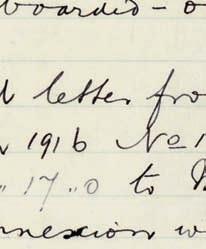 boarded - o
d letter fro
1916 No 1
" 17 " 0 to
nnexion w